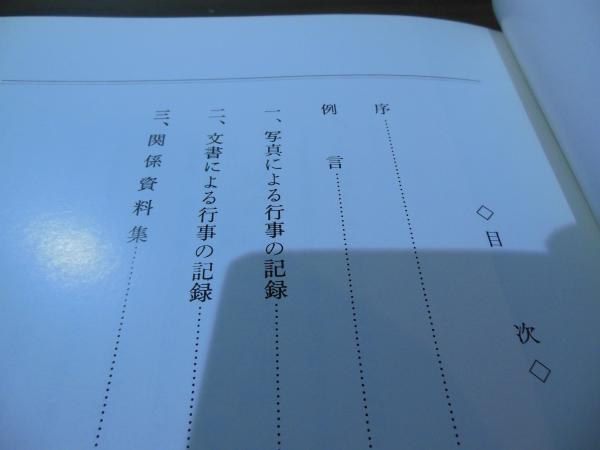 ◇目次◇
序……………………………
例言……………………………
一、写真による行事の記録……………
二、文書による行事の記録……………
三、関係資料集……………………